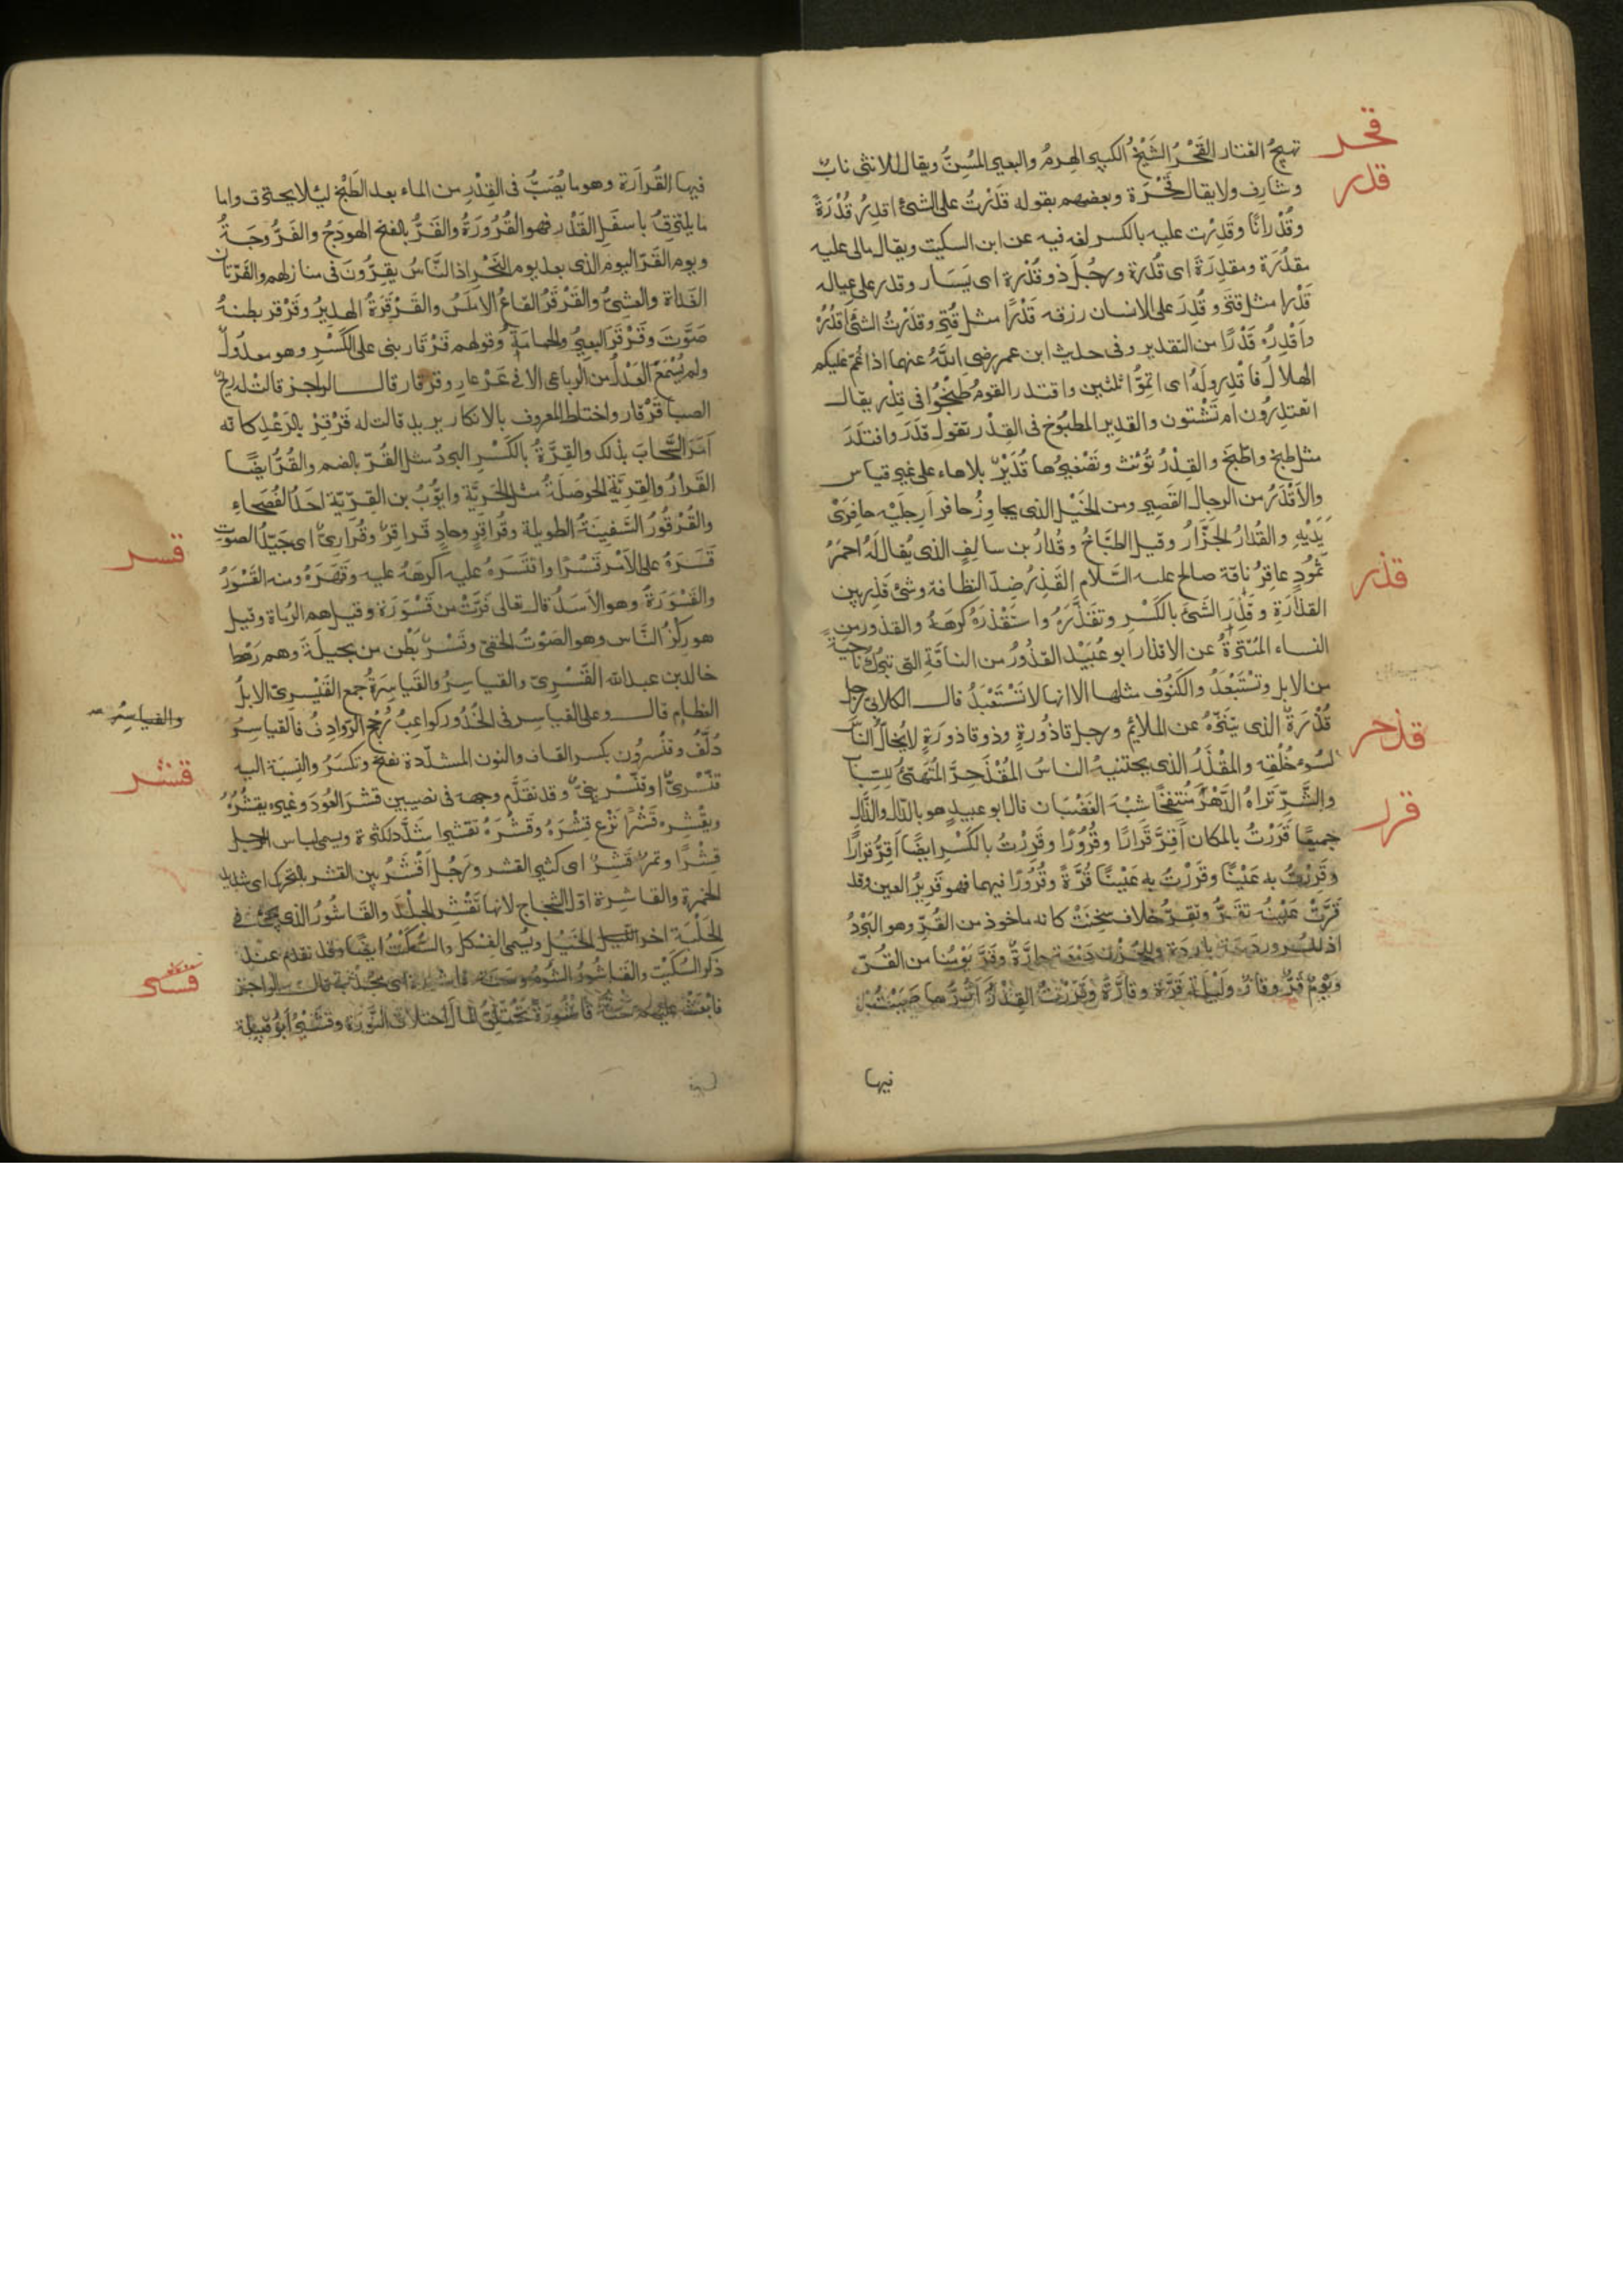 قحر
تهيج القتار القَحْرُ الشَّيْخُ الكبير الهِرمُ والبعير المُسِنُّ ويقال للانثى نابٌ
قدر
وشارف ولا يقال قَحْرَة وبعضهم يقوله قَدَرْتُ على الشئ اقدِرُ قُدْرَةً
وقُدْرانًا وقَدِرْت عليه بالكسر لغه فيه عن ابن السكيت ويقال مالى عليه
مقدُرَة ومقدِرَة اى قُدرة ورجُل ذو قُدْرة اى يَسَار وقدر على عياله
قَدْرا مثل قتر وقُدِرَ على الانسان رزقه قَدْرًا مثل قُتِر وقدَرْتُ الشئَ اَقدُرُ
واَقْدِرُه قَدْرًا من التقدير وفى حديث ابن عمر رضى اللهُ عنهما اذا غُمّ عليكم
الهلالُ فاقْدِروا لَهُ اى اتِمّوا ثلثين واقتدر القومُ طَبَخُوا فى قِدْر يقال
اتقتدِرُون ام تَشْتوون والقدير المطبُوخ فى القِدْر تقول قدَرَ واقتدَرَ
مثل طبخ واطَّبخَ والقِدْرُ تُؤنث وتَصْغيرُها قُدَيْرٌ بلا هاء على غير قياس
والاَقْدَرُ من الرجال القصير ومن الخَيْل الذى يجاوِزُ حافر اَرجلَيْه حافِرَىْ
يَدَيْهِ والقُدارُ الجَزَّارُ وقيل الطبّاخُ وقُدارُ بن سالفٍ الذى يُقال لَهُ احمَرُ
قذر
ثمُودٍ عاقِرُ ناقة صالح عليه السَّلام القَذِرُ ضدّ النظافة وشئ قَذِر بين
القذارَةِ وقَذِرَ الشَّئَ بالكَسْرِ وتقذَّرَهُ واستقْذرَهُ كرهَهُ والقذُور من
النساء المُتنزّهةُ عن الاقذار ابو عُبَيْد القذُورُ من الناقَةِ التى تبرك ناحيةً
من الابل وتستَبْعَدُ والكَنُوف مثلها الا انها لا تَسْتَبْعَدُ قال الكلابى رجل
قُذَرَةٌ الذى يتنَزّهُ عن الملائم ورجل قاذُورةٍ وذو قاذورَةٍ لا يُخالُّ النّاسَ
قذحر
لسُوء خُلُقِه والمقْذَرُ الذى يجتنبهُ الناسُ المُقْذَحِرُّ المُتَهيّئُ للسِّبابِ
والشَّرِّ تَراهُ الدَّهْرَ مُنتفخًا شبْهَ الغَضْبَان قال ابو عبيدٍ هو بالدّال والذّال
قرر
جميعًا قَرَرْتُ بالمكان اَقِرَّ قَرارًا وقُرُورًا وقَرِرْتُ بالكَسْرِ ايضًا اَقِرُّ قرارًا
وقَرِرْتُ به عَيْنًا وقَرَرْتُ بِه عَيْنًا قُرَّةً وقُرُورًا فيهما فهو قَرِيرُ العين وقد
قَرَّتْ عَيْنُه تقَرُّ وتَقِرُّ خلاف سَخِنَتْ كانه ماخوذ من القُرِّ وهو البَرْدُ
اذ للسرور دَمعة باردَة وللحُزْن دَمْعَة حارَّةٌ وقَرَّ يَوْمُنا من القُرّ
ويَوْمٌ قَرٌّ وقارٌّ ولَيْلة قَرَّة وقارَّةٌ وقَرَرْتُ القِدْرَ اَقُرُّها صَبَبْتُ
فيها
فيها القُرارَة وهو ما يُصَبُّ فى القِدْرِ من الماء بعد الطَّبْخ ليُلا يحترق واما
ما يلتزِقُ باسفَلِ القَدْر فهو القُرُورَةُ والقَرُّ بالفتح الهودَجُ والفَرُّوجَةُ
ويوم القَرّ اليوم الذى بعد يوم النَّحْر اذ النَّاسُ يقِرُّونَ فى منازلهم والقَرّتان
الغَداة والعشىُّ والقَرْقَرُ القاعُ الاملَسُ والقَرْقَرَةُ الهديرُ وقَرْقر بطنهُ
صَوَّتَ وقَرْقَرَ البعيرُ والحمامَةُ وقولهم قَرْقار بنى على الكَسْرِ وهو معدُولٌ
ولم يُسْمَعْ العَدْلُ من الرباعى الا فى عَرْعارِ وقرقار قال الراجز قالتْ له ريحُ
الصبا قَرْقار واختلط المعروف بالانكار يريد قالت له قَرْقِرْ بالرَعْد كانه
اَمَرَ السَّحابَ بذلك والقِرَّةُ بالكَسْرِ البردُ مثل القُرّ بالضم والقُرُّ ايضًا
القَرارُ والقِرِيَّة الحَوصَلةُ مثل الجَرِيَّة وايّوُبُ بن القِرّيّة احَدُ الفُصَحاءِ
والقُرْقُورُ السَّفينَةُ الطويلة وقُراقِرٍ وحادٍ قراقِرٌ وقُرَارِىٌّ اى جَيّدُ الصوت
قسر
قَسَرَهُ على الاَمْر قَسْرًا واقتَسَرَهُ عليه اكرهَهُ عليه وقَهَرَهُ ومنه القَسْوَرُ
والقَسْوَرَةُ وهو الاَسَدُ قال تعالى فرّتْ من قَسْوَرَة وقيل هم الرُماة وقيل
هو رِكْزُ النَّاس وهو الصَوْتُ الخفىّ وقَسْرٌ بَطْن من بجيلَةَ وهم رَهْط
خالد بن عبد الله القَسْرِىّ والقياسِرُ والقَياسِرَةُ جمع القَيْسرىّ الابلُ
والقياسِرُ صح
العظام قال وعلى القياسِر فى الخُدُور كواعِبُ رُجُح الرّوادِف فالقياسِرُ
دُلَّفُ وقنَّسرُون بكسر القاف والنون المشدّدة تفتح وتكسَرُ والنِسْبَة اليه
قشر
قنّسْرىٌّ او قنَّسْرِينىٌّ وقد تقدّم وجهه فى نصيبين قشرَ العُودَ وغيره يقشُرُهُ
ويقْشِره قَشْرًا نزَع قِشْرَهُ وقشَّرَهُ تقشيرا شدّد لكثرة ويسمى لباس الرجل
قِشْرًا وتمرٌ قَشِرٌ اى كثير القشر ورَجُل اَقْشَرُ بين القشر بالتحرك اى شديد
الحمرة والقاشِرة اوّل الشجاج لانها تَقْشر الجِلْدَ والقاشُورُ الذى يجئ فى
الحَلْبَة اخر الخَيْل ويُسمى الفِسْكِل والسُّكَيْتُ ايضًا وقد تقدم عند
ذكر السُكَيْت والقاشُورُ الشُوم وسنة قاشورة اى مُجْدِبة قال الراجز
قشر
فابعَثْ عليهم سنَةً قاشُورَة تَحْتَلِقُ المالَ احتلاقَ النُّورَة وقُشَيْرٌ اَبُو قبيلة